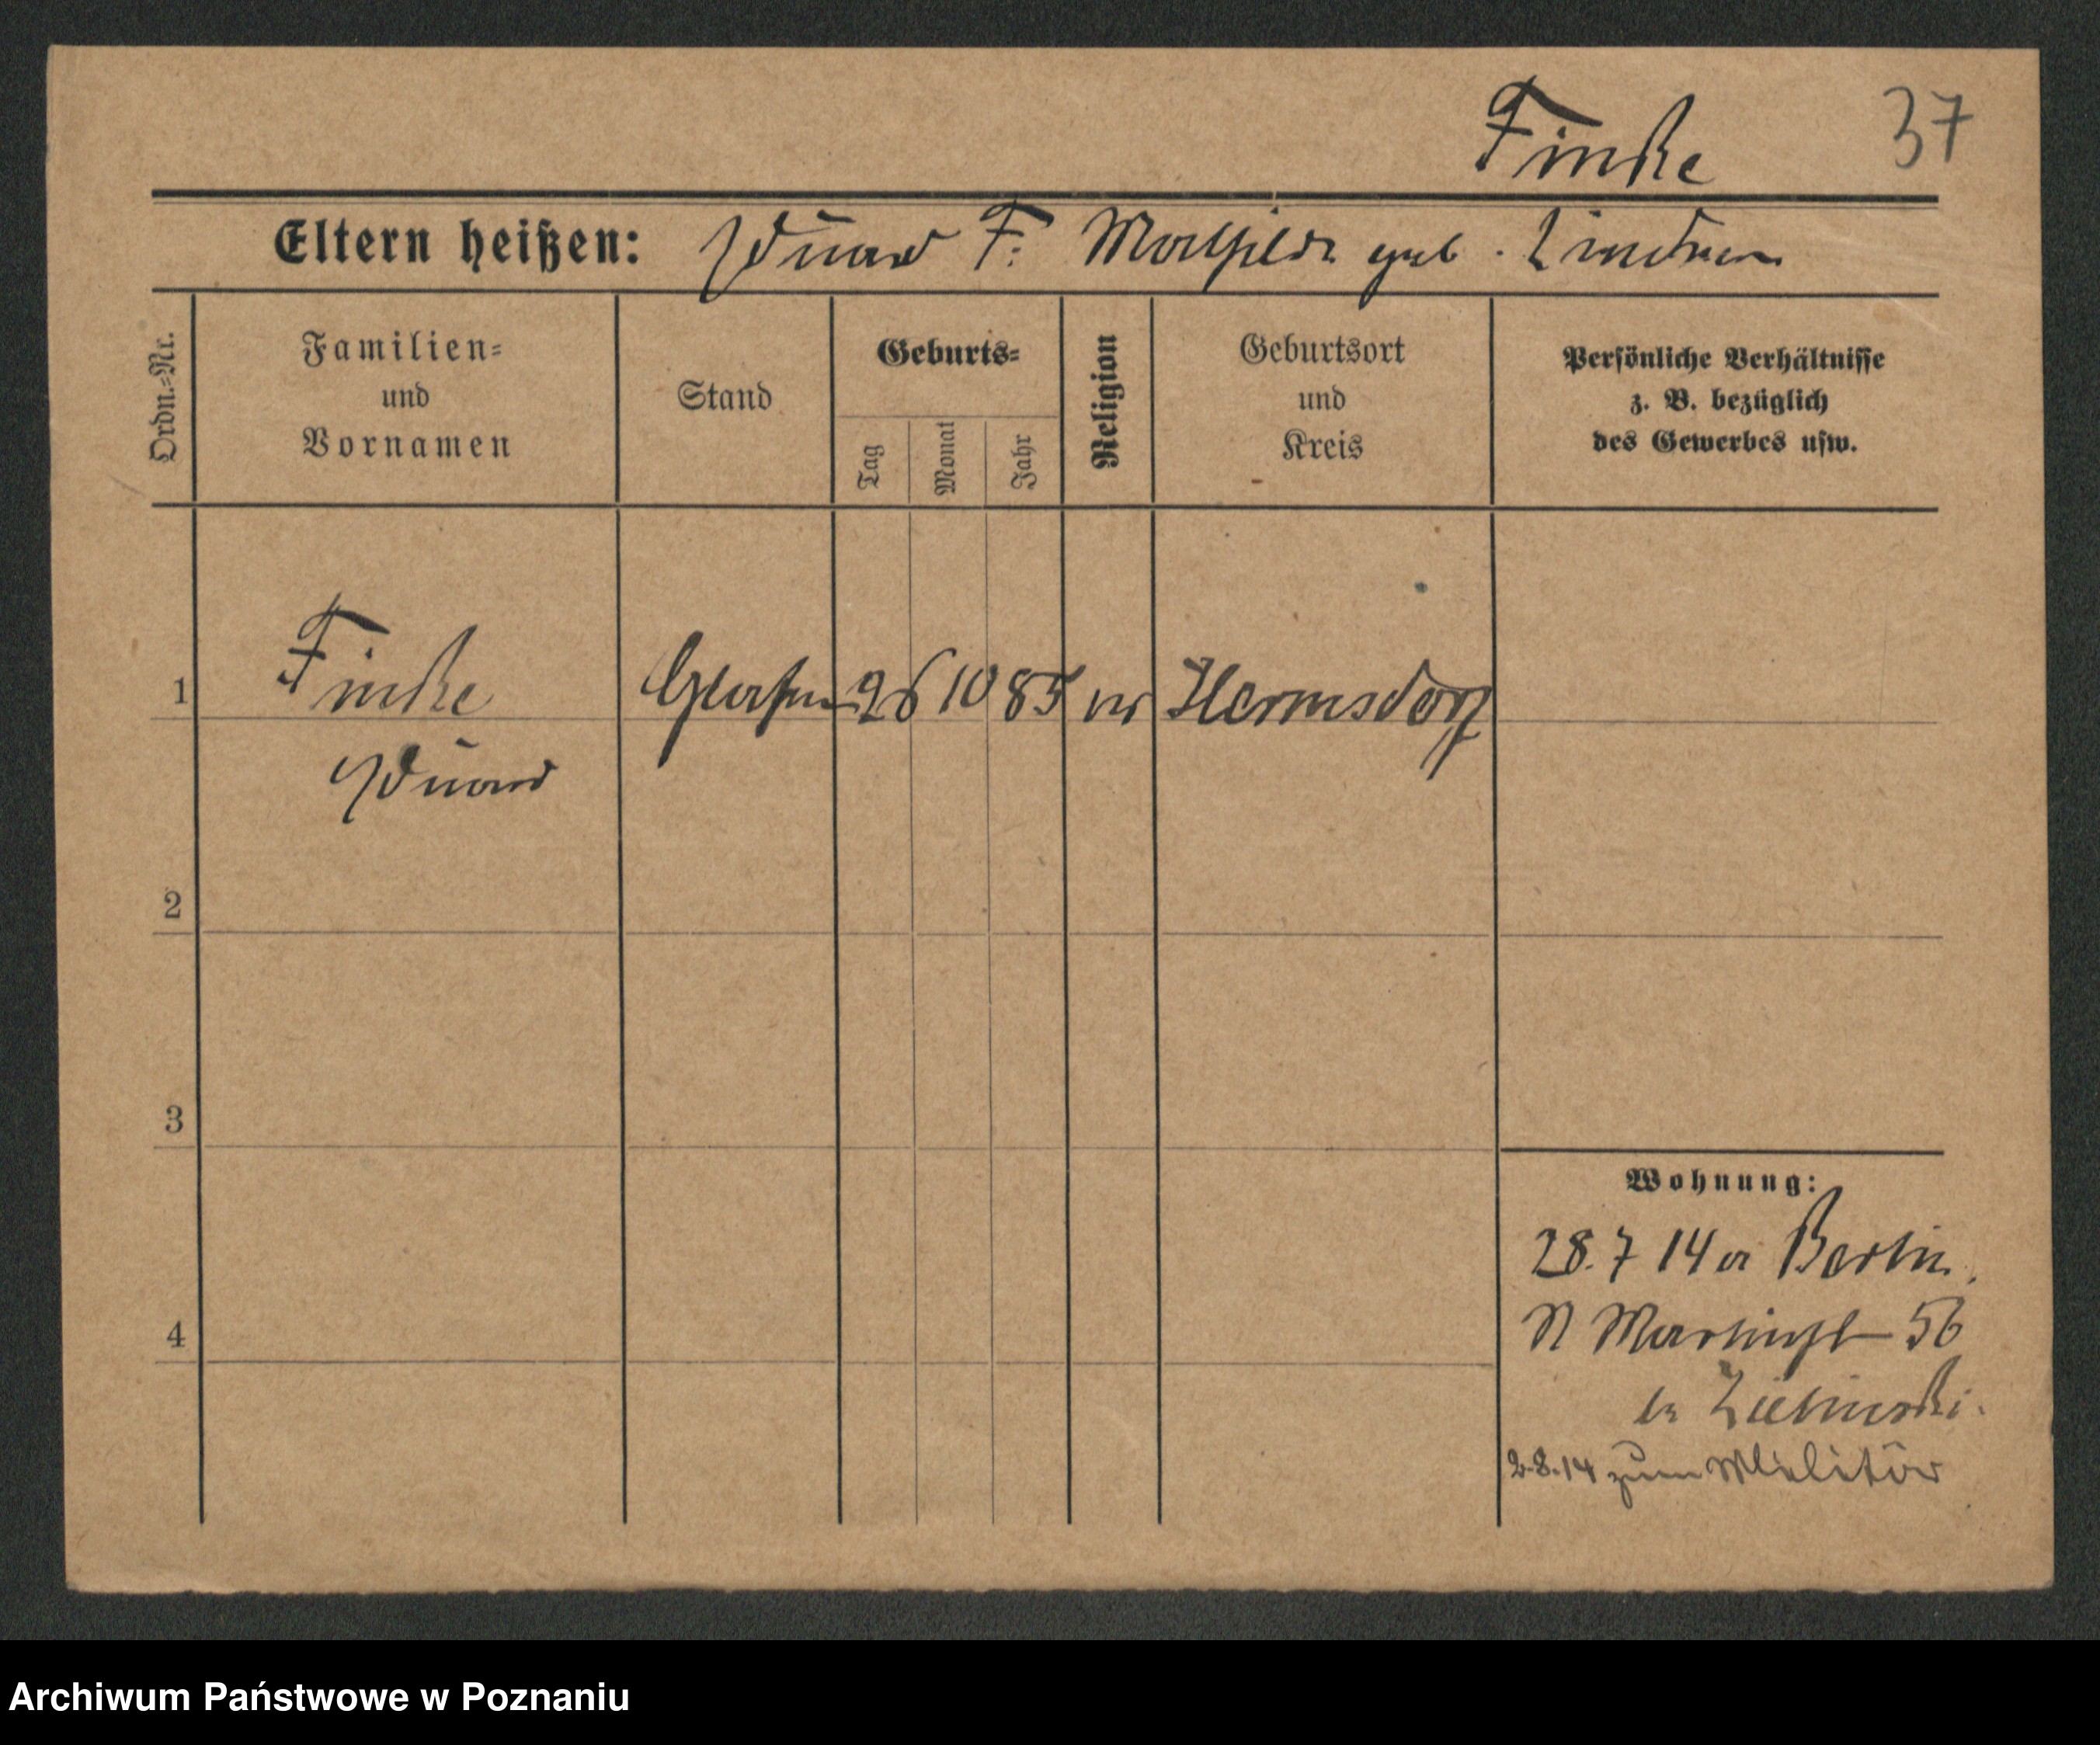 Finke 37
Eltern heißen: Eduard F. Mathilde geb. Lindner
Ordn.-Nr.
Familien-
und
Vornamen
Stand
Geburts-
Tag
Monat
Jahr
Religion
Geburtsort
und
Kreis
Persönliche Verhältnisse
z. B. bezüglich
des Gewerbes usw.
1 Finke Glaser 26 10 85 ev Hermsdorf
Eduard
2
3
4
Wohnung:
28.7 14 a Berlin.
N 56
b Zielinski.
2.8.14 zum Militär
Archiwum Państwowe w Poznaniu